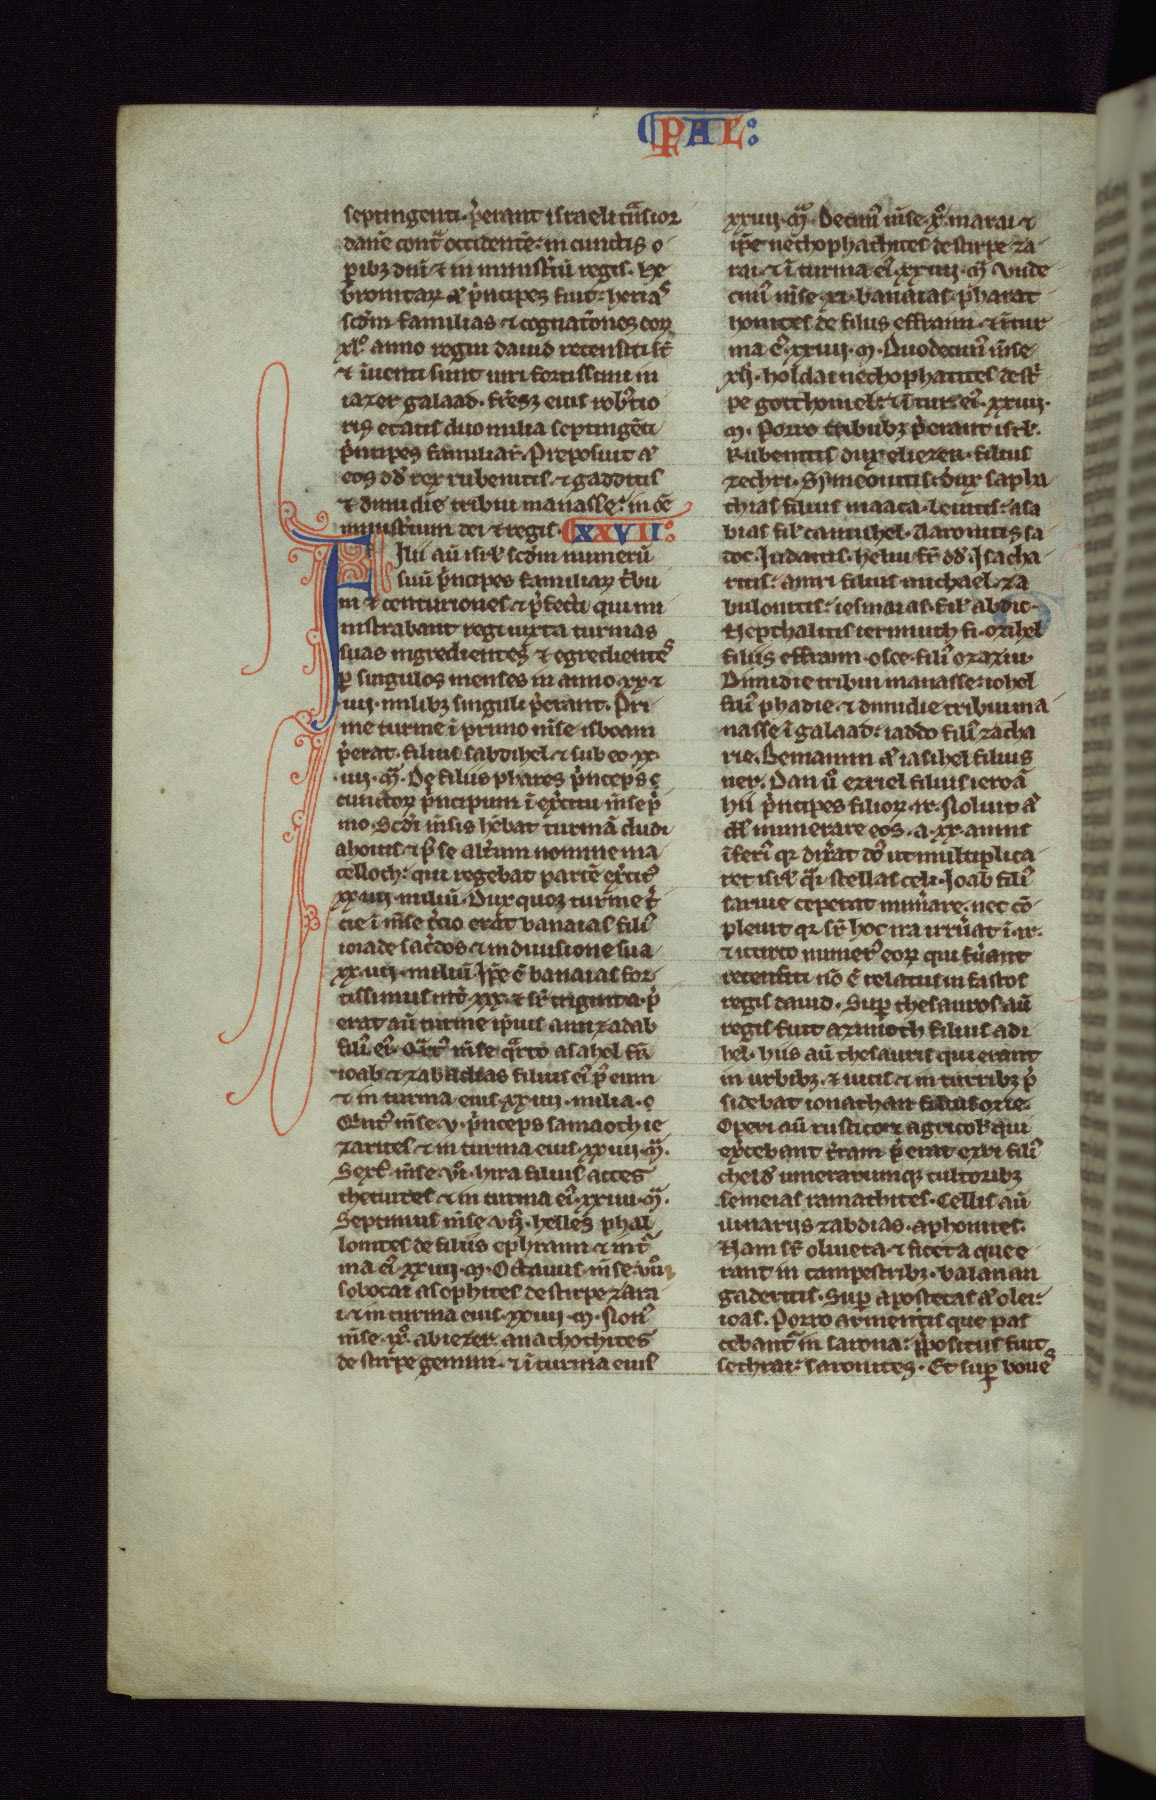 PAL:
septingenti. p̄erant israeli trāsior
danē contᵃ occidentē: in cunctis o
ꝑibꝫ dn̄i ⁊ in ministr̄iū regis. he
bronitaꝝ ā p̄ncipes fuit: herias
scd̄m familias ⁊ cognat̄ones eoꝝ
xlº anno regni dauid recensiti st̄
⁊ īuenti sunt uiri fortissimi in
iazer galaad. fr̄esꝫ eius rob̄tio
ris etatis duo milia septingēti
p̄ncipes familiaꝝ. Preposuit ā
eos dd̄ rex rubenitis. ⁊ gadditis
⁊ dimidie tribui manasse: in oē
ministerium dei ⁊ regis. XXVII:
Filii aū isrl̄ scd̄m numerū
suū p̄ncipes familiaꝝ t̄bu
ni ⁊ centuriones ⁊ p̄fecti qui mi
nistrabant regi iuxta turmas
suas ingredientes ⁊ egredientes
ꝑ singulos menses in anno xx ⁊
iiij. milibꝫ singuli p̄erant. Pri
me turme ī primo mēse isboam
p̄erat. filius sabdihel ⁊ sub eo xx
.iiij. mᵃ. De filiis phares p̄nceps
cunctoꝝ p̄ncipum ī ex̄citu mēse p̄
mo. Scd̄i mēsis hēbat turmā dudi
ahoius ⁊ p̄ se alt̄um nomine ma
celloth: qui regebat partē ex̄cit᷒
xx.iiij. miliū. Dux quoqꝫ turme t̄
cie ī mēse t̄cio erat banaias fili᷒
ioiade sac̄dos ⁊ in diuisione sua
xx.iiij. miliū. Ip̄e ē banaias for
tissimus int̄ xxx. ⁊ sr̄ triginta. p̄
erat aū turme ip̄ius amizadab
fili᷒ ei᷒. Qᵃrt᷒ mēse qᵃrto asahel fr̄
ioab ⁊ zabadias filius ei᷒ p᷒ eum
⁊ in turma eius xxiiij. milia.
Qint᷒ mēse v. p̄nceps samaoth ie
zarites ⁊ in turma eius xxiiij. mᵃ.
Sext᷒ mēse vi. hira filius acces
thecuites ⁊ in turma ei᷒ xxiiij. mᵃ.
Septimus mēse vij. helles phal
lonites de filiis ephraim ⁊ in t᷒
ma ei᷒ xxiiij. m. Octauus mēse viij
sobocai asophites de stirpe zara
i ⁊ in turma eius xxiiij. m. Non᷒
mēse ixº abiezer anathothites
de stirpe gemini. ⁊ ī turma eius
xxiiij. mᵃ. Decim᷒ mēse xº marai ⁊
ip̄e nethophathites de stirpe za
rai. ⁊ ī turma ei᷒ xxiiij. m. Vnde
cim᷒ mēse xi. banaias pharat
honites de filiis effraim ⁊ ī tur
ma e᷒ xxiiij. m. Duodecim᷒ mēse
xij. holdai nethophatites de stir
pe gotthoniel: ⁊ ī tur. ei᷒. xxiiij.
m. Porro tribubꝫ p̄erant isrl̄.
Rubenitis dux eliezer. filius
zechri. Symeonitis: dux sapha
thias filius maaca. Leuitis: asa
bias fil᷒ camuhel. Aaronitis sa
doc. Iudaitis. heliu fr̄ dd̄. Isacha
ritis: amri filius michael. za
bulonitis: iesmaias. fil᷒ abdie.
Nepthalitis ierimuth fi. ozihel
filiis effraim. osee. fili᷒ ozaziu.
Dimidie tribui manasse: iohel
fili᷒ phadie. ⁊ dimidie tribui ma
nasse ī galaad: iaddo fili᷒ zacha
rie. Beniamin ā iasihel filius
ner. Dan ū ezriel filius ieroā
hii p̄ncipes filioꝝ. ir. Noluit ā
dd̄ numerare eos. a. xx. annis
īferi᷒ qꝛ dix̄at dn̄s ut multiplica
ret isrl̄ qᵃi stellas celi. Ioab fili᷒
saruie ceperat num̄are. nec cō
pleuit qꝛ sr̄ hoc ira irr̄uat ī. ir.
⁊ icirco numer᷒ eoꝝ qui fūant
recensiti nō ē relatus in fastos
regis dauid. Suꝑ thesauros aū
regis fuit azmoth filius adi
hel. hiis aū thesauris qui erant
in urbibꝫ. ⁊ uicis ⁊ in turribꝫ p̄
sidebat ionathan filius ozie.
Operi aū rustico ⁊ agricolis qui
ex̄cebant t̄ram p̄erat ezri fili᷒
chelub uinearumqꝫ cultoribꝫ
semeias ramathites. Cellis aū
uinariis zabdias. aphonites.
Nam sr̄ oliueta ⁊ ficeta que e
rant in campestribꝫ. balanan
gaderitis. Suꝑ apostecas ā olei:
ioas. Porro armentis que pas
cebant᷒ in sarona: p̄positus fuit
sethrai: saronites. Et suꝑ boues